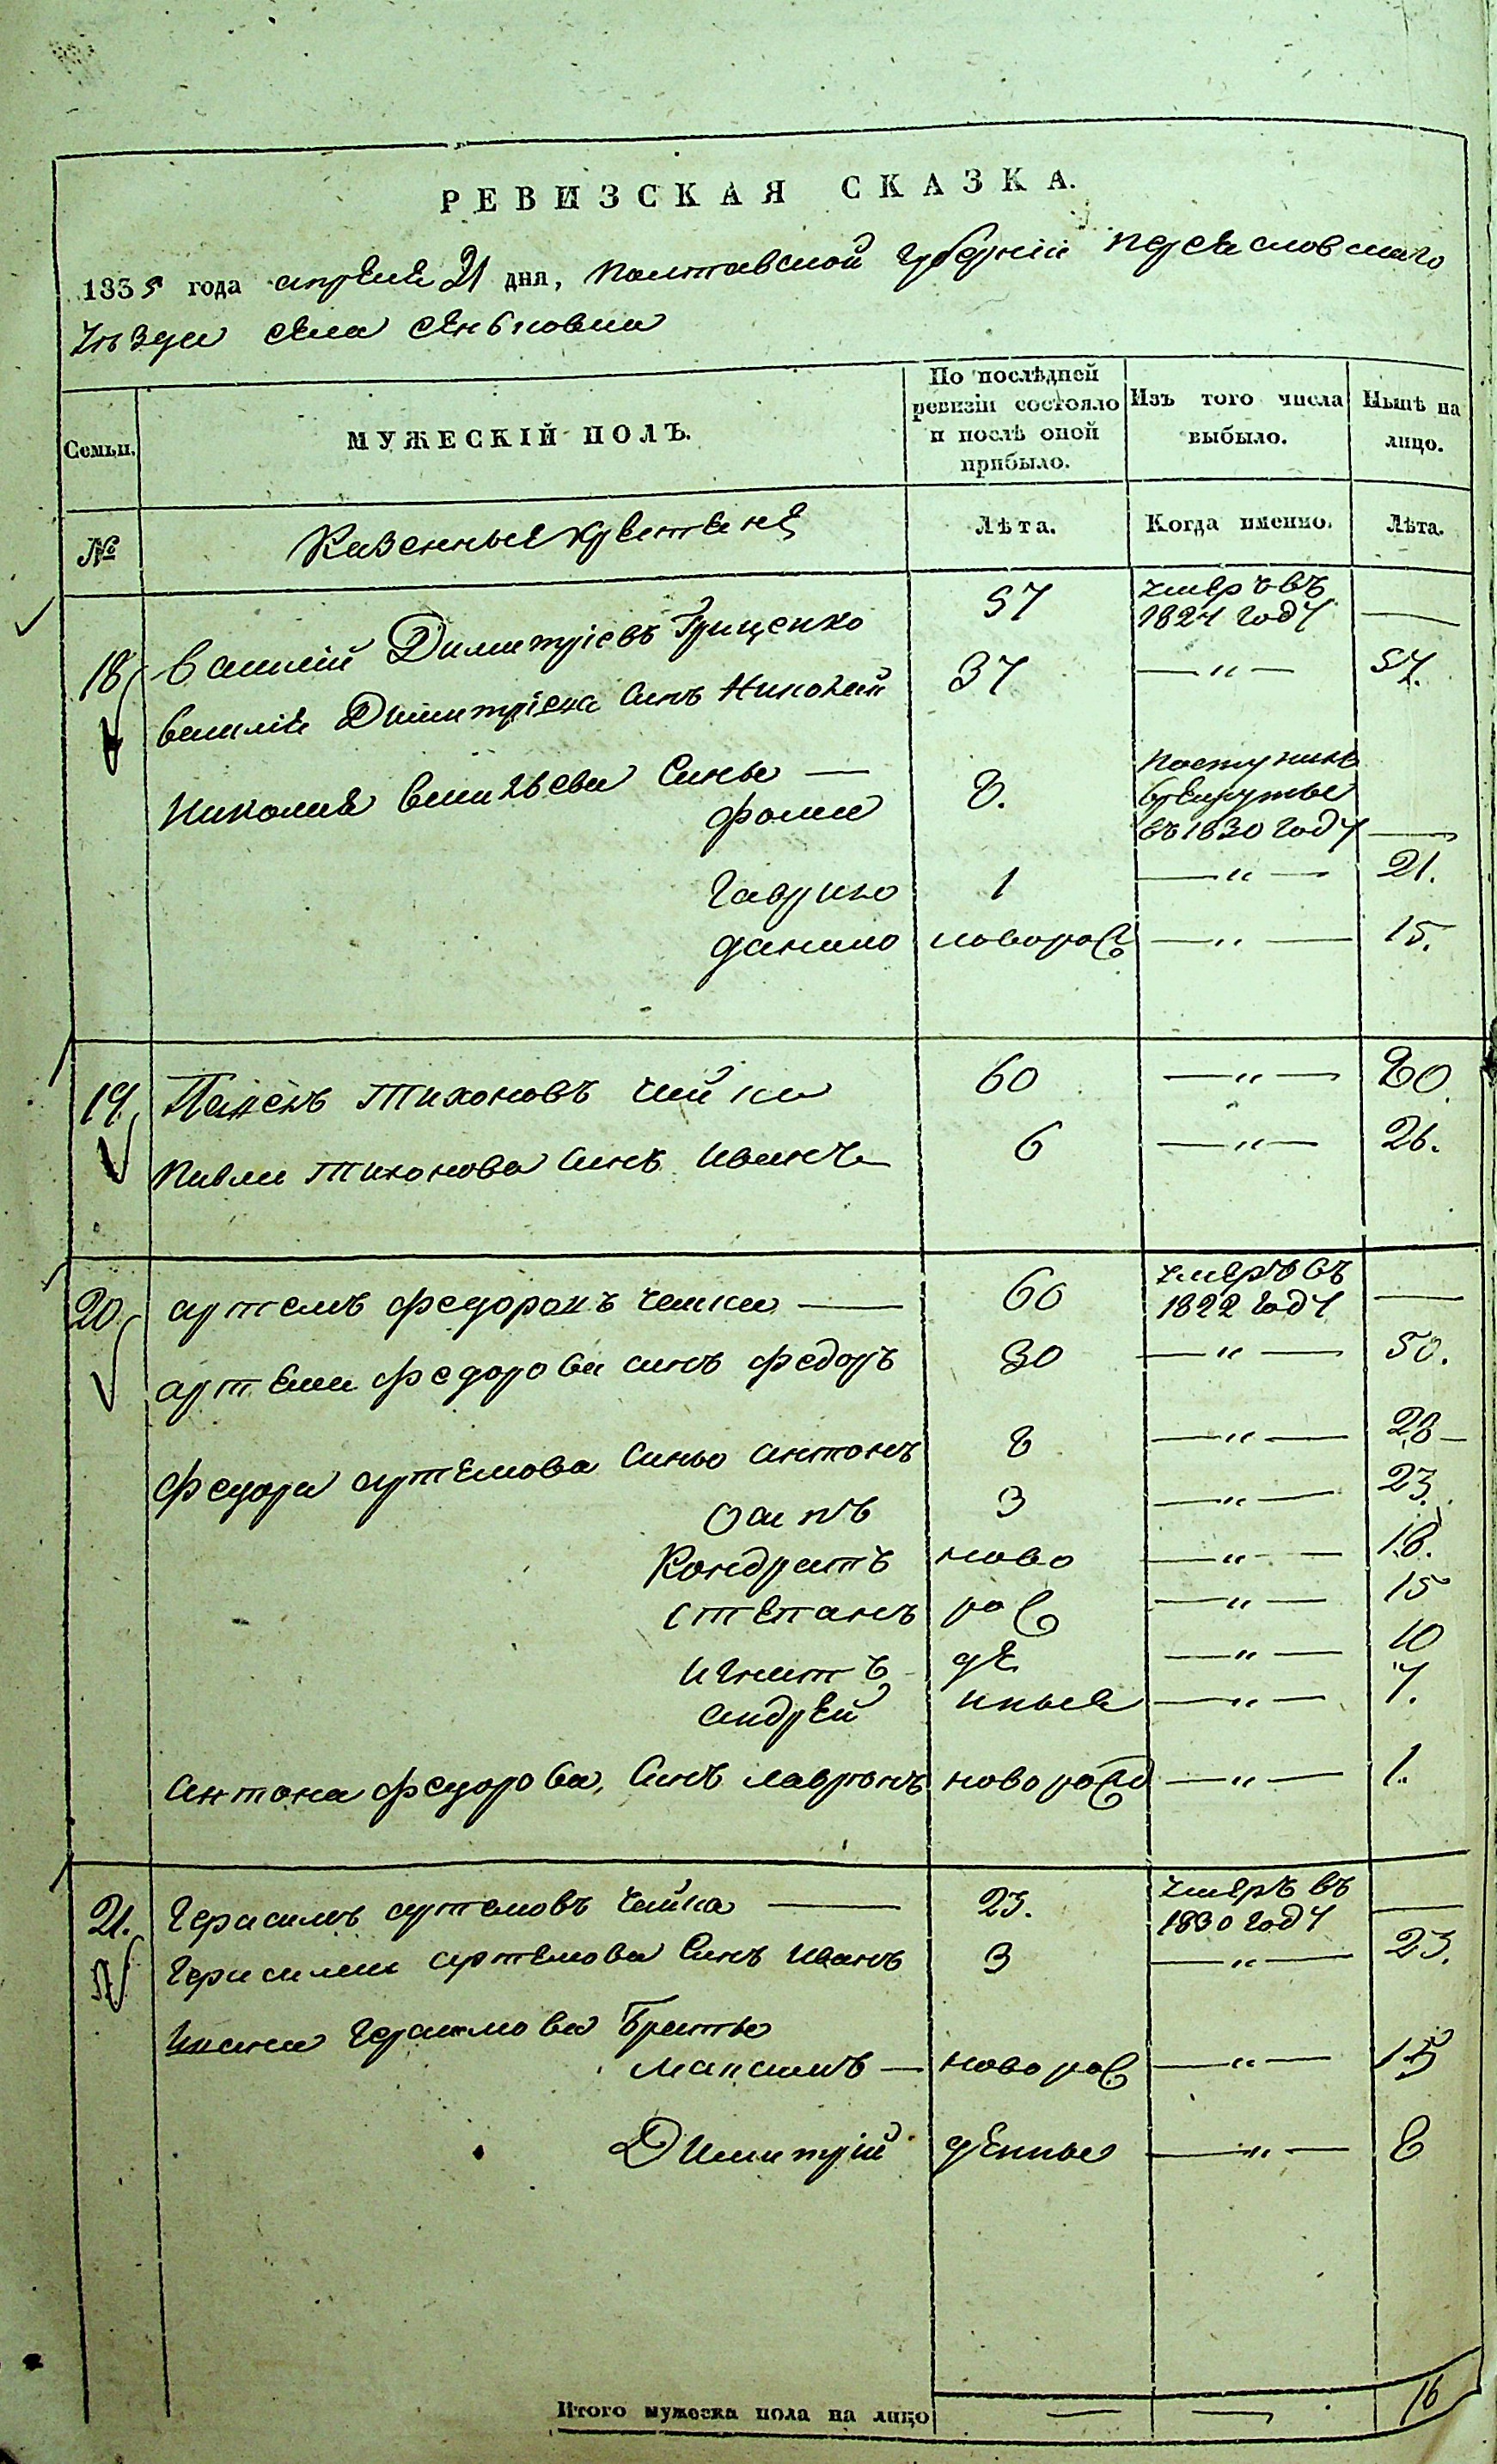 РЕВИЗСКАЯ СКАЗКА.
1835 года апреля 21 дня, Полтавской Губернии Переясловскаго
уѣзда села Сеньковки
Семьи. МУЖЕСКІЙ ПОЛЪ. По послѣдней ревизіи состояло и послѣ оной прибыло. Изъ того числа выбыло. Нынѣ на лицо.
№ Казенные крестьяне Лѣта. Когда именно. Лѣта.
18 Василій Димитріевъ Гриценко 57 умеръ въ 1824 году —
Василія Димитріева Синъ Николай 37 — „ — 57.
Николая Васильева Сины —
Фома 8. поступилъ в рекруты въ 1830 году —
Гаврило 1 — „ — 21.
Данило новорож — „ — 15.
19. Павелъ Тихоновъ Чайка 60 — „ — 80.
Павла Тихонова Синъ Иванъ 6 — „ — 26.
20. Артемъ Федоровъ Чайка — 60 умеръ въ 1822 году —
Артема Федорова синъ Федоръ 30 — „ — 50.
Федора Артемова Сины Антонъ 8 — „ — 28
Осипъ 3 — „ — 23.
Кондратъ ново — „ — 18.
Степанъ рож — „ — 15
Игнатъ де — „ — 10
Андрей нные — „ — 7.
Антона Федорова, Синъ Лавронъ новорожд — „ — 1.
21. Герасимъ Артемовъ Чайка — 23. умеръ въ 1830 году —
Герасима Артемова Синъ Иванъ 3 — „ — 23.
Ивана Герасимова Братья
Максимъ — новорож — „ — 15
Димитрій денные — „ — 8
Итого мужеска пола на лицо — — 16